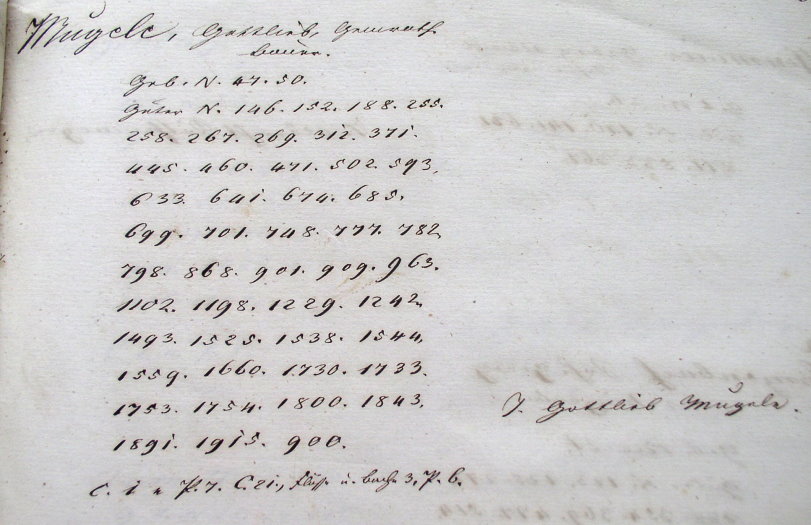 Mugele, Gottlieb, Gemrath
Bauer.
Geb. N. 47. 50.
Güter N. 146. 152. 188. 255.
258. 267. 269. 312. 371.
445. 460. 471. 502. 593.
633. 641. 674. 685.
699. 701. 748. 777. 782.
798. 868. 901. 909. 963.
1102. 1198. 1229. 1242.
1493. 1525. 1538. 1544.
1559. 1660. 1730. 1733.
1753. 1754. 1800. 1843.
T. Gottlieb Mugele.
1891. 1915. 900.
C. 1 P. 7. C. 21., u. Bach 3, P. 6.